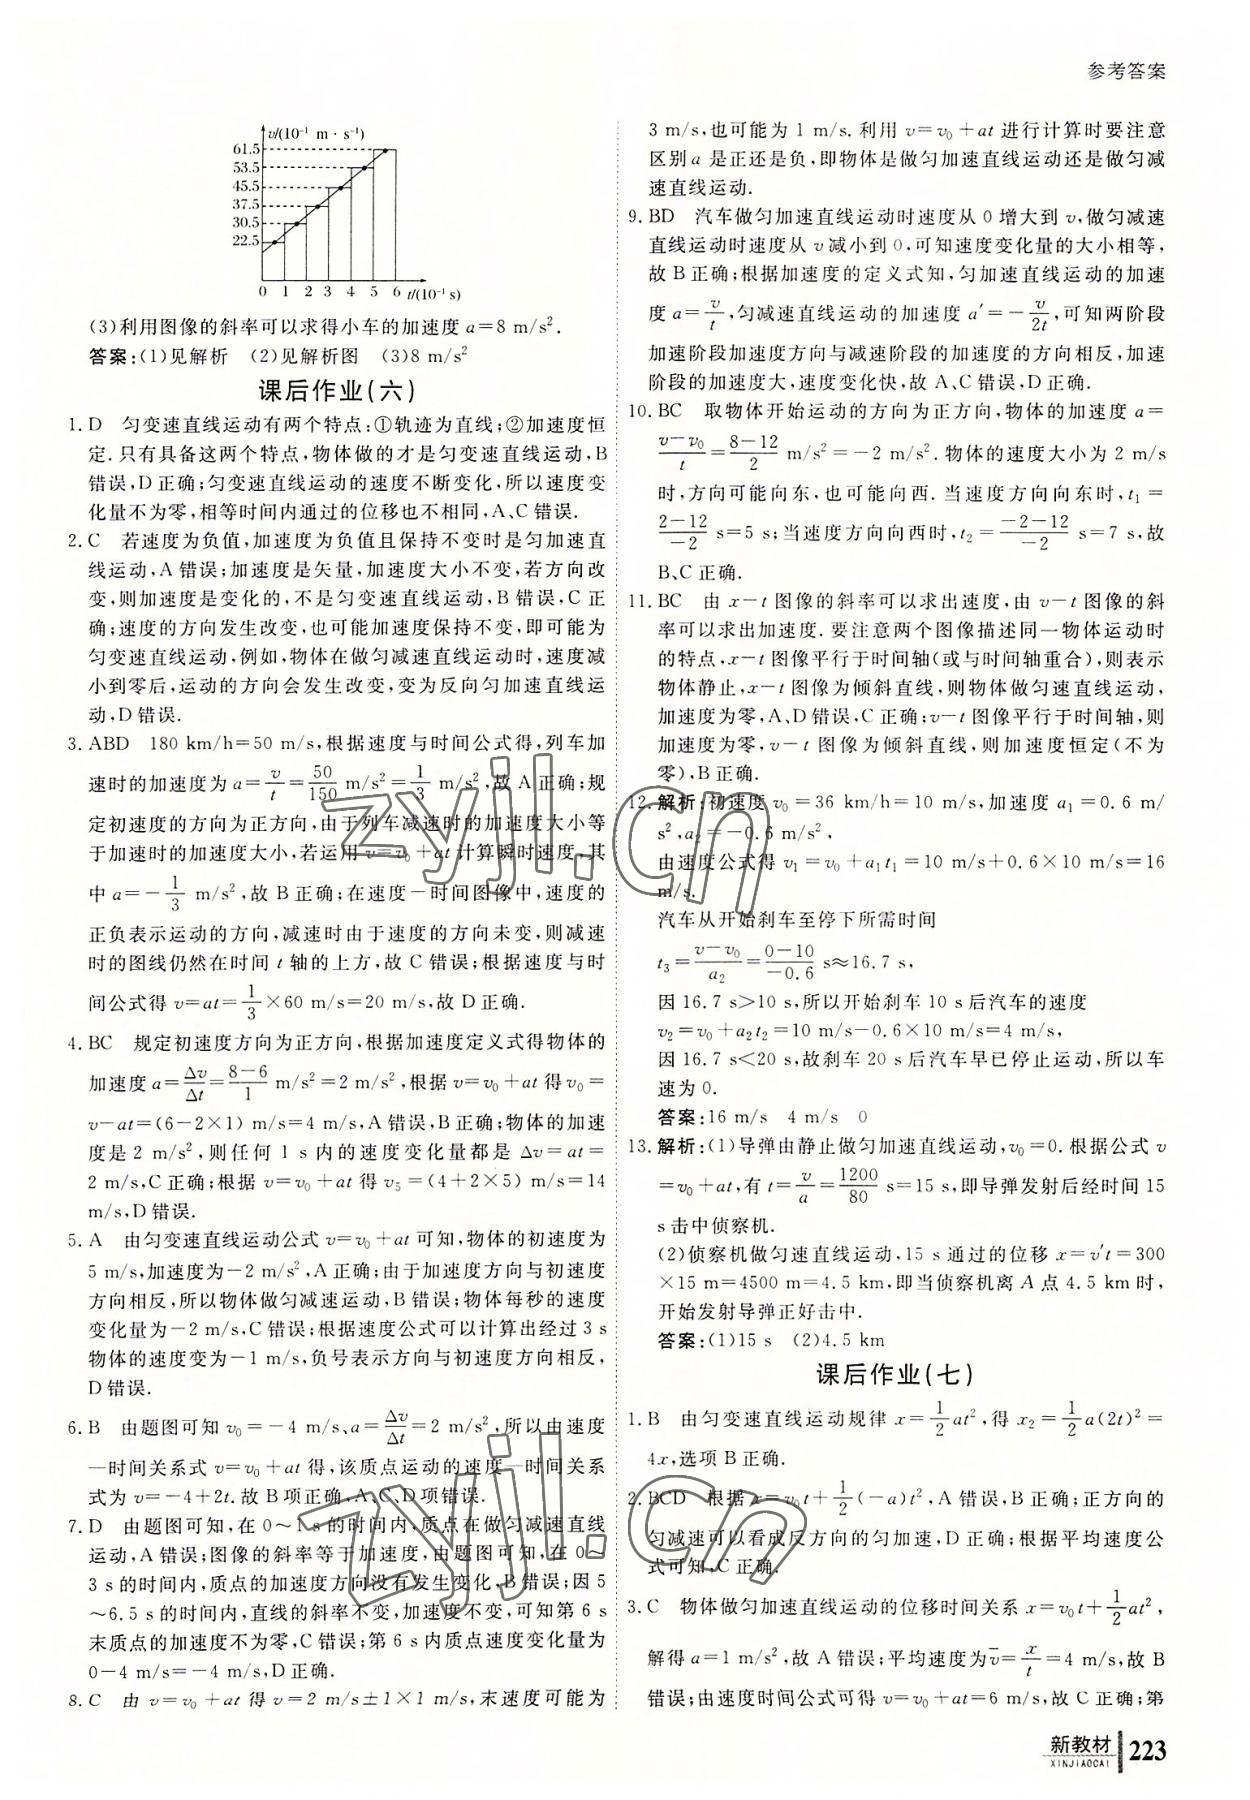 参考答案
v/(10⁻¹ m·s⁻¹)
61.5
53.5
45.5
37.5
30.5
22.5
0 1 2 3 4 5 6 t/(10⁻¹ s)
(3)利用图像的斜率可以求得小车的加速度 a=8 m/s².
答案:(1)见解析 (2)见解析图 (3)8 m/s²
课后作业(六)
1. D 匀变速直线运动有两个特点:①轨迹为直线;②加速度恒
定.只有具备这两个特点,物体做的才是匀变速直线运动,B
错误,D 正确;匀变速直线运动的速度不断变化,所以速度变
化量不为零,相等时间内通过的位移也不相同,A、C 错误.
2. C 若速度为负值,加速度为负值且保持不变时是匀加速直
线运动,A 错误;加速度是矢量,加速度大小不变,若方向改
变,则加速度是变化的,不是匀变速直线运动,B 错误,C 正
确;速度的方向发生改变,也可能加速度保持不变,即可能为
匀变速直线运动,例如,物体在做匀减速直线运动时,速度减
小到零后,运动的方向会发生改变,变为反向匀加速直线运
动,D 错误.
3. ABD 180 km/h=50 m/s,根据速度与时间公式得,列车加
速时的加速度为 a=v/t=50/150 m/s²=1/3 m/s²,故 A 正确;规
定初速度的方向为正方向,由于列车减速时的加速度大小等
于加速时的加速度大小,若运用 v=v₀+at 计算瞬时速度,其
中 a=-1/3 m/s²,故 B 正确;在速度—时间图像中,速度的
正负表示运动的方向,减速时由于速度的方向未变,则减速
时的图线仍然在时间 t 轴的上方,故 C 错误;根据速度与时
间公式得 v=at=1/3×60 m/s=20 m/s,故 D 正确.
4. BC 规定初速度方向为正方向,根据加速度定义式得物体的
加速度 a=Δv/Δt=(8-6)/1 m/s²=2 m/s²,根据 v=v₀+at 得 v₀=
v-at=(6-2×1) m/s=4 m/s,A 错误,B 正确;物体的加速
度是 2 m/s²,则任何 1 s 内的速度变化量都是 Δv=at=
2 m/s,C 正确;根据 v=v₀+at 得 v₅=(4+2×5) m/s=14
m/s,D 错误.
5. A 由匀变速直线运动公式 v=v₀+at 可知,物体的初速度为
5 m/s,加速度为-2 m/s²,A 正确;由于加速度方向与初速度
方向相反,所以物体做匀减速运动,B 错误;物体每秒的速度
变化量为-2 m/s,C 错误;根据速度公式可以计算出经过 3 s
物体的速度变为-1 m/s,负号表示方向与初速度方向相反,
D 错误.
6. B 由题图可知 v₀=-4 m/s、a=Δv/Δt=2 m/s²,所以由速度
—时间关系式 v=v₀+at 得,该质点运动的速度—时间关系
式为 v=-4+2t.故 B 项正确,A、C、D 项错误.
7. D 由题图可知,在 0～1 s 的时间内,质点在做匀减速直线
运动,A 错误;图像的斜率等于加速度,由题图可知,在 0～
3 s 的时间内,质点的加速度方向没有发生变化,B 错误;因 5
～6.5 s 的时间内,直线的斜率不变,加速度不变,可知第 6 s
末质点的加速度不为零,C 错误;第 6 s 内质点速度变化量为
0-4 m/s=-4 m/s,D 正确.
8. C 由 v=v₀+at 得 v=2 m/s±1×1 m/s,末速度可能为
3 m/s,也可能为 1 m/s.利用 v=v₀+at 进行计算时要注意
区别 a 是正还是负,即物体是做匀加速直线运动还是做匀减
速直线运动.
9. BD 汽车做匀加速直线运动时速度从 0 增大到 v,做匀减速
直线运动时速度从 v 减小到 0,可知速度变化量的大小相等,
故 B 正确;根据加速度的定义式知,匀加速直线运动的加速
度 a=v/t,匀减速直线运动的加速度 a′=-v/2t,可知两阶段
加速阶段加速度方向与减速阶段的加速度的方向相反,加速
阶段的加速度大,速度变化快,故 A、C 错误,D 正确.
10. BC 取物体开始运动的方向为正方向,物体的加速度 a=
(v-v₀)/t=(8-12)/2 m/s²=-2 m/s².物体的速度大小为 2 m/s
时,方向可能向东,也可能向西.当速度方向向东时,t₁=
(2-12)/-2 s=5 s;当速度方向向西时,t₂=(-2-12)/-2 s=7 s,故
B、C 正确.
11. BC 由 x-t 图像的斜率可以求出速度,由 v-t 图像的斜
率可以求出加速度.要注意两个图像描述同一物体运动时
的特点,x-t 图像平行于时间轴(或与时间轴重合),则表示
物体静止,x-t 图像为倾斜直线,则物体做匀速直线运动,
加速度为零,A、D 错误,C 正确;v-t 图像平行于时间轴,则
加速度为零,v-t 图像为倾斜直线,则加速度恒定(不为
零),B 正确.
12. 解析:初速度 v₀=36 km/h=10 m/s,加速度 a₁=0.6 m/
s²,a₂=-0.6 m/s²,
由速度公式得 v₁=v₀+a₁t₁=10 m/s+0.6×10 m/s=16
m/s.
汽车从开始刹车至停下所需时间
t₃=(v-v₀)/a₂=(0-10)/-0.6 s≈16.7 s,
因 16.7 s>10 s,所以开始刹车 10 s 后汽车的速度
v₂=v₀+a₂t₂=10 m/s-0.6×10 m/s=4 m/s,
因 16.7 s<20 s,故刹车 20 s 后汽车早已停止运动,所以车
速为 0.
答案:16 m/s 4 m/s 0
13. 解析:(1)导弹由静止做匀加速直线运动,v₀=0.根据公式 v
=v₀+at,有 t=v/a=1200/80 s=15 s,即导弹发射后经时间 15
s 击中侦察机.
(2)侦察机做匀速直线运动,15 s 通过的位移 x=v′t=300
×15 m=4500 m=4.5 km,即当侦察机离 A 点 4.5 km 时,
开始发射导弹正好击中.
答案:(1)15 s (2)4.5 km
课后作业(七)
1. B 由匀变速直线运动规律 x=1/2at²,得 x₂=1/2a(2t)²=
4x,选项 B 正确.
2. BCD 根据 x=v₀t+1/2(-a)t²,A 错误,B 正确;正方向的
匀减速可以看成反方向的匀加速,D 正确;根据平均速度公
式可知,C 正确.
3. C 物体做匀加速直线运动的位移时间关系 x=v₀t+1/2at²,
解得 a=1 m/s²,故 A 错误;平均速度为v̄=x/t=4 m/s,故 B
错误;由速度时间公式可得 v=v₀+at=6 m/s,故 C 正确;第
新教材
XINJIAOCAI
223
zyjl.cn
zyjl.cn